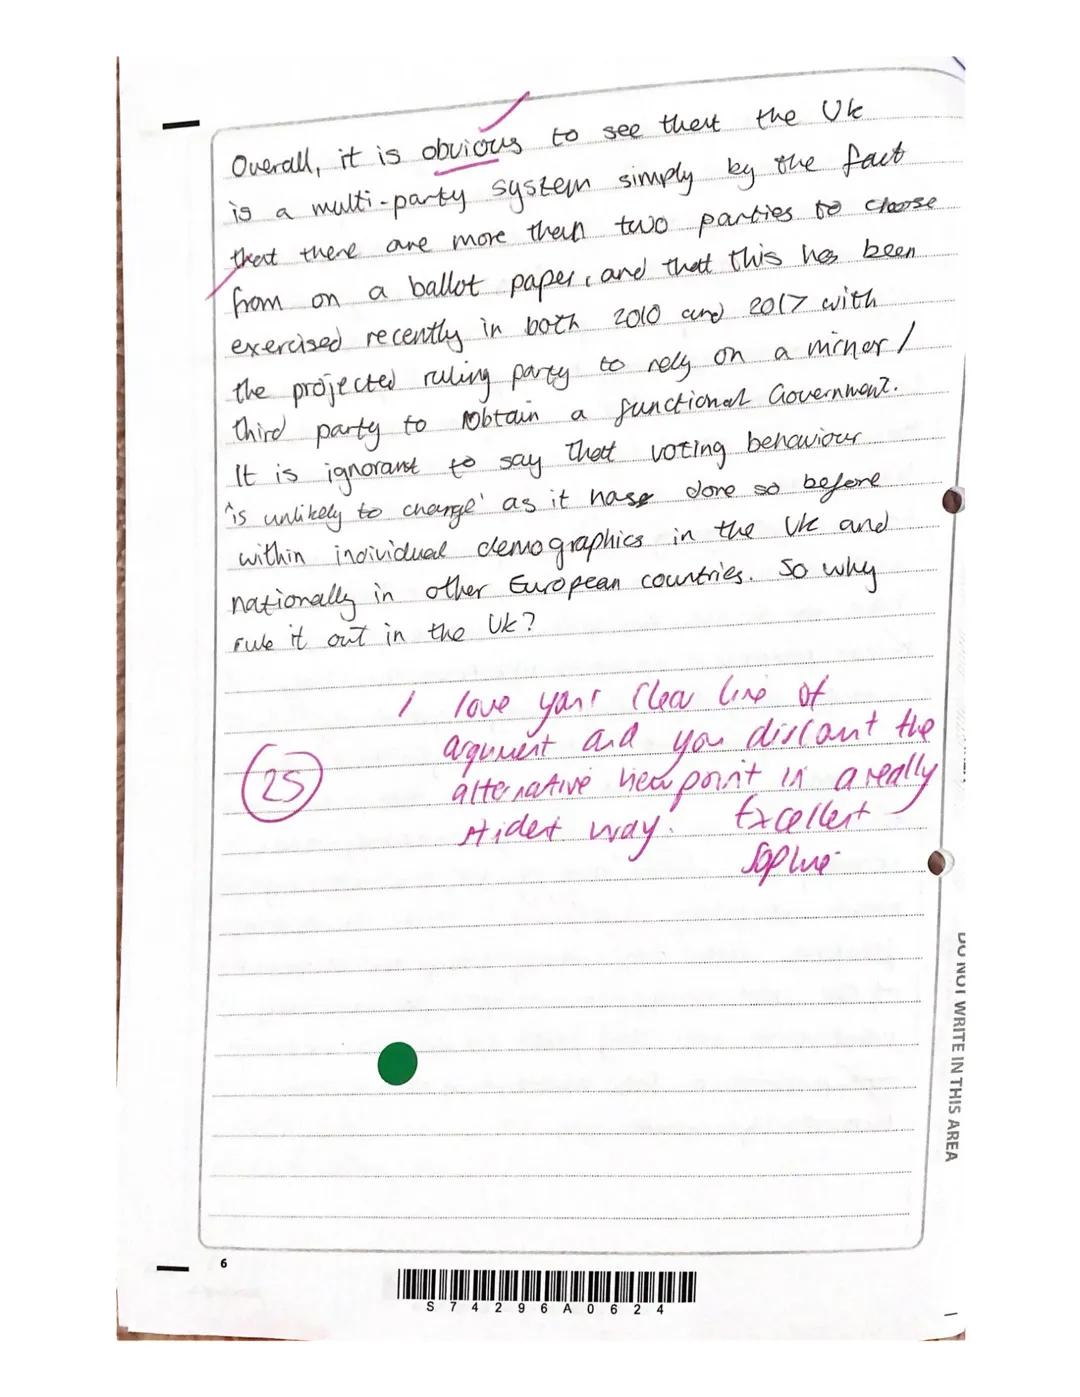 Overall, it is obvious to see that the UK
is a multi-party system simply by the fact
that there are more than two parties to choose
from on a ballot paper, and that this has been
exercised recently in both 2010 and 2017 with
the projected ruling party to rely on a minor/
third party to obtain a functional Government.
It is ignorant to say that voting behaviour
'is unlikely to change' as it has done so before
within individual demographics in the UK and
nationally in other European countries. So why
rule it out in the UK?
I love your clear line of
argument and you discount the
25
alternative viewpoint in a really
strident way. Excellent
Sophie
DO NOT WRITE IN THIS AREA
6
S74296A0624